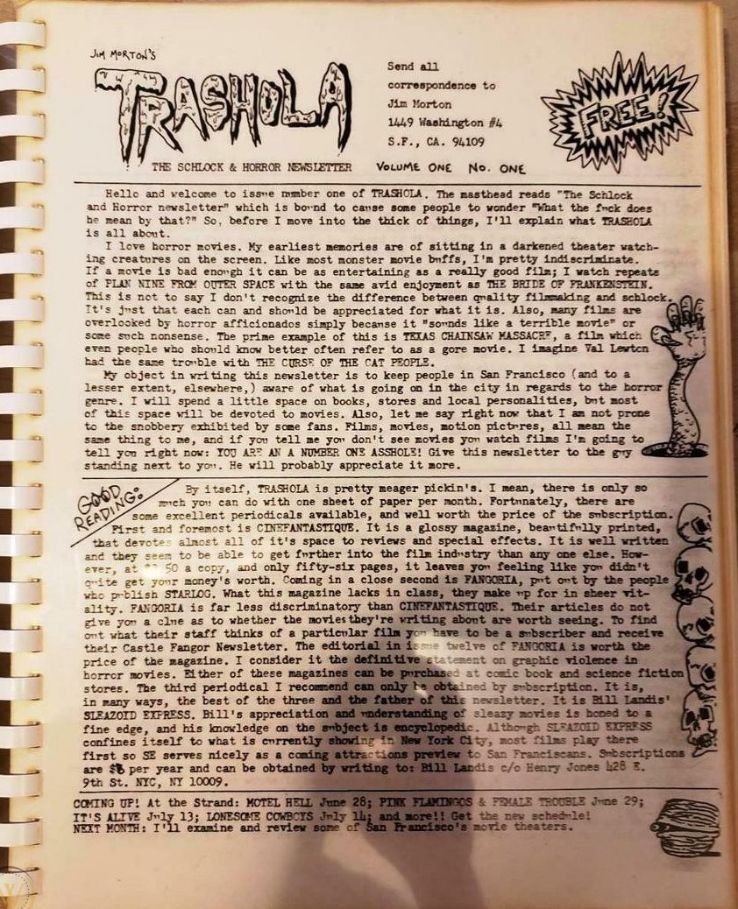 JIM MORTON'S
TRASHOLA
Send all
correspondence to
Jim Morton
1449 Washington #4
S.F., CA. 94109
FREE!
THE SCHLOCK & HORROR NEWSLETTER
VOLUME ONE No. ONE
Hello and welcome to issue number one of TRASHOLA. The masthead reads "The Schlock
and Horror newsletter" which is bound to cause some people to wonder "What the fuck does
he mean by that?" So, before I move into the thick of things, I'll explain what TRASHOLA
is all about.
I love horror movies. My earliest memories are of sitting in a darkened theater watch-
ing creatures on the screen. Like most monster movie buffs, I'm pretty indiscriminate.
If a movie is bad enough it can be as entertaining as a really good film; I watch repeats
of PLAN NINE FROM OUTER SPACE with the same avid enjoyment as THE BRIDE OF FRANKENSTEIN.
This is not to say I don't recognize the difference between quality filmmaking and schlock.
It's just that each can and should be appreciated for what it is. Also, many films are
overlooked by horror afficionados simply because it "sounds like a terrible movie" or
some such nonsense. The prime example of this is TEXAS CHAINSAW MASSACRE, a film which
even people who should know better often refer to as a gore movie. I imagine Val Lewton
had the same trouble with THE CURSE OF THE CAT PEOPLE.
My object in writing this newsletter is to keep people in San Francisco (and to a
lesser extent, elsewhere,) aware of what is going on in the city in regards to the horror
genre. I will spend a little space on books, stores and local personalities, but most
of this space will be devoted to movies. Also, let me say right now that I am not prone
to the snobbery exhibited by some fans. Films, movies, motion pictures, all mean the
same thing to me, and if you tell me you don't see movies you watch films I'm going to
tell you right now: YOU ARE AN A NUMBER ONE ASSHOLE! Give this newsletter to the guy
standing next to you. He will probably appreciate it more.
GOOD
READING:
By itself, TRASHOLA is pretty meager pickin's. I mean, there is only so
much you can do with one sheet of paper per month. Fortunately, there are
some excellent periodicals available, and well worth the price of the subscription.
First and foremost is CINEFANTASTIQUE. It is a glossy magazine, beautifully printed,
that devotes almost all of it's space to reviews and special effects. It is well written
and they seem to be able to get further into the film industry than any one else. How-
ever, at 50 a copy, and only fifty-six pages, it leaves you feeling like you didn't
quite get your money's worth. Coming in a close second is FANGORIA, put out by the people
who publish STARLOG. What this magazine lacks in class, they make up for in sheer vit-
ality. FANGORIA is far less discriminatory than CINEFANTASTIQUE. Their articles do not
give you a clue as to whether the movies they're writing about are worth seeing. To find
out what their staff thinks of a particular film you have to be a subscriber and receive
their Castle Fangor Newsletter. The editorial in issue twelve of FANGORIA is worth the
price of the magazine. I consider it the definitive statement on graphic violence in
horror movies. Either of these magazines can be purchased at comic book and science fiction
stores. The third periodical I recommend can only be obtained by subscription. It is,
in many ways, the best of the three and the father of this newsletter. It is Bill Landis'
SLEAZOID EXPRESS. Bill's appreciation and understanding of sleazy movies is honed to a
fine edge, and his knowledge on the subject is encyclopedic. Although SLEAZOID EXPRESS
confines itself to what is currently showing in New York City, most films play there
first so SE serves nicely as a coming attractions preview to San Franciscans. Subscriptions
are per year and can be obtained by writing to: Bill Landis c/o Henry Jones 428 E.
9th St. NYC, NY 10009.
COMING UP! At the Strand: MOTEL HELL June 28; PINK FLAMINGOS & FEMALE TROUBLE June 29;
IT'S ALIVE July 13; LONESOME COWBOYS July 14; and more!! Get the new schedule!
NEXT MONTH: I'll examine and review some of San Francisco's movie theaters.